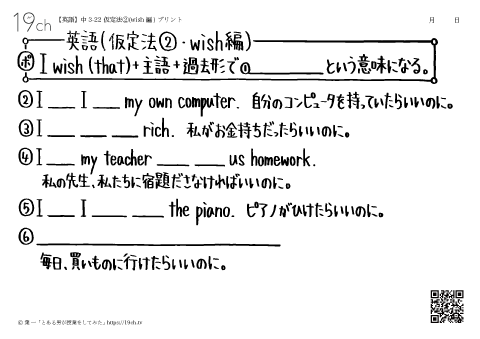 19ch 【英語】中3-22 仮定法②(wish 編)プリント 月 日
英語(仮定法②・wish編)
ポ I wish (that)+主語+過去形で①________という意味になる。
② I ___ I ___ my own computer. 自分のコンピュータを持っていたらいいのに。
③ I ___ ___ ___ rich. 私がお金持ちだったらいいのに。
④ I ___ my teacher ___ ___ us homework.
私の先生、私たちに宿題ださなければいいのに。
⑤ I ___ I ___ ___ the piano. ピアノがひけたらいいのに。
⑥ ________________
毎日、買いものに行けたらいいのに。
© 葉一「とある男が授業をしてみた」https://19ch.tv